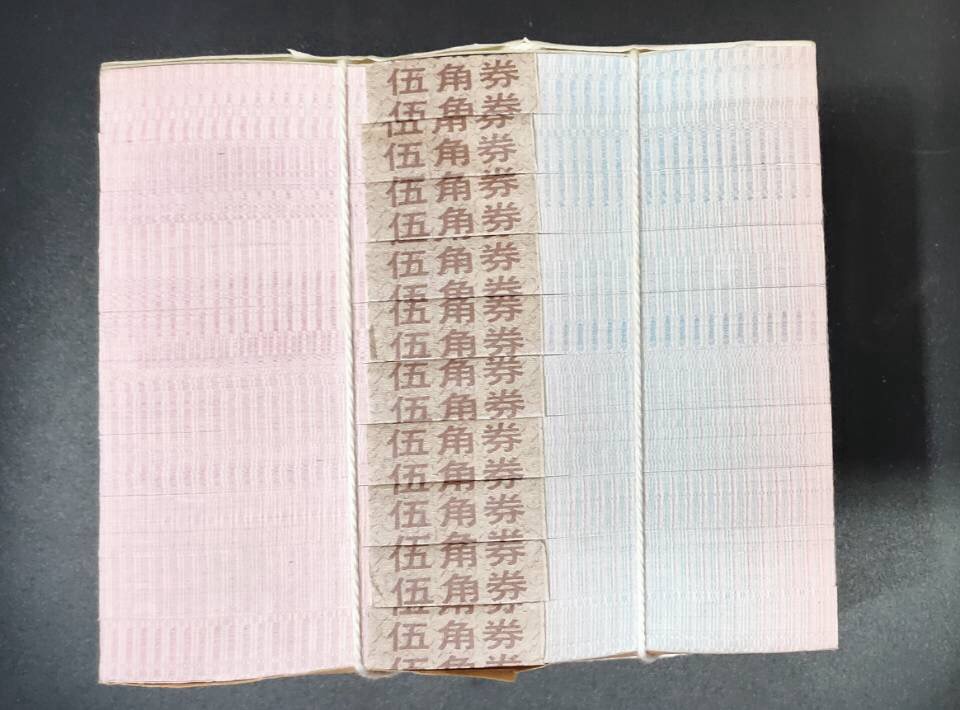 伍角券
伍角券
伍角券
伍角券
伍角券
伍角券
伍角券
伍角券
伍角券
伍角券
伍角券
伍角券
伍角券
伍角券
伍角券
伍角券
伍角券
伍角券
伍角券